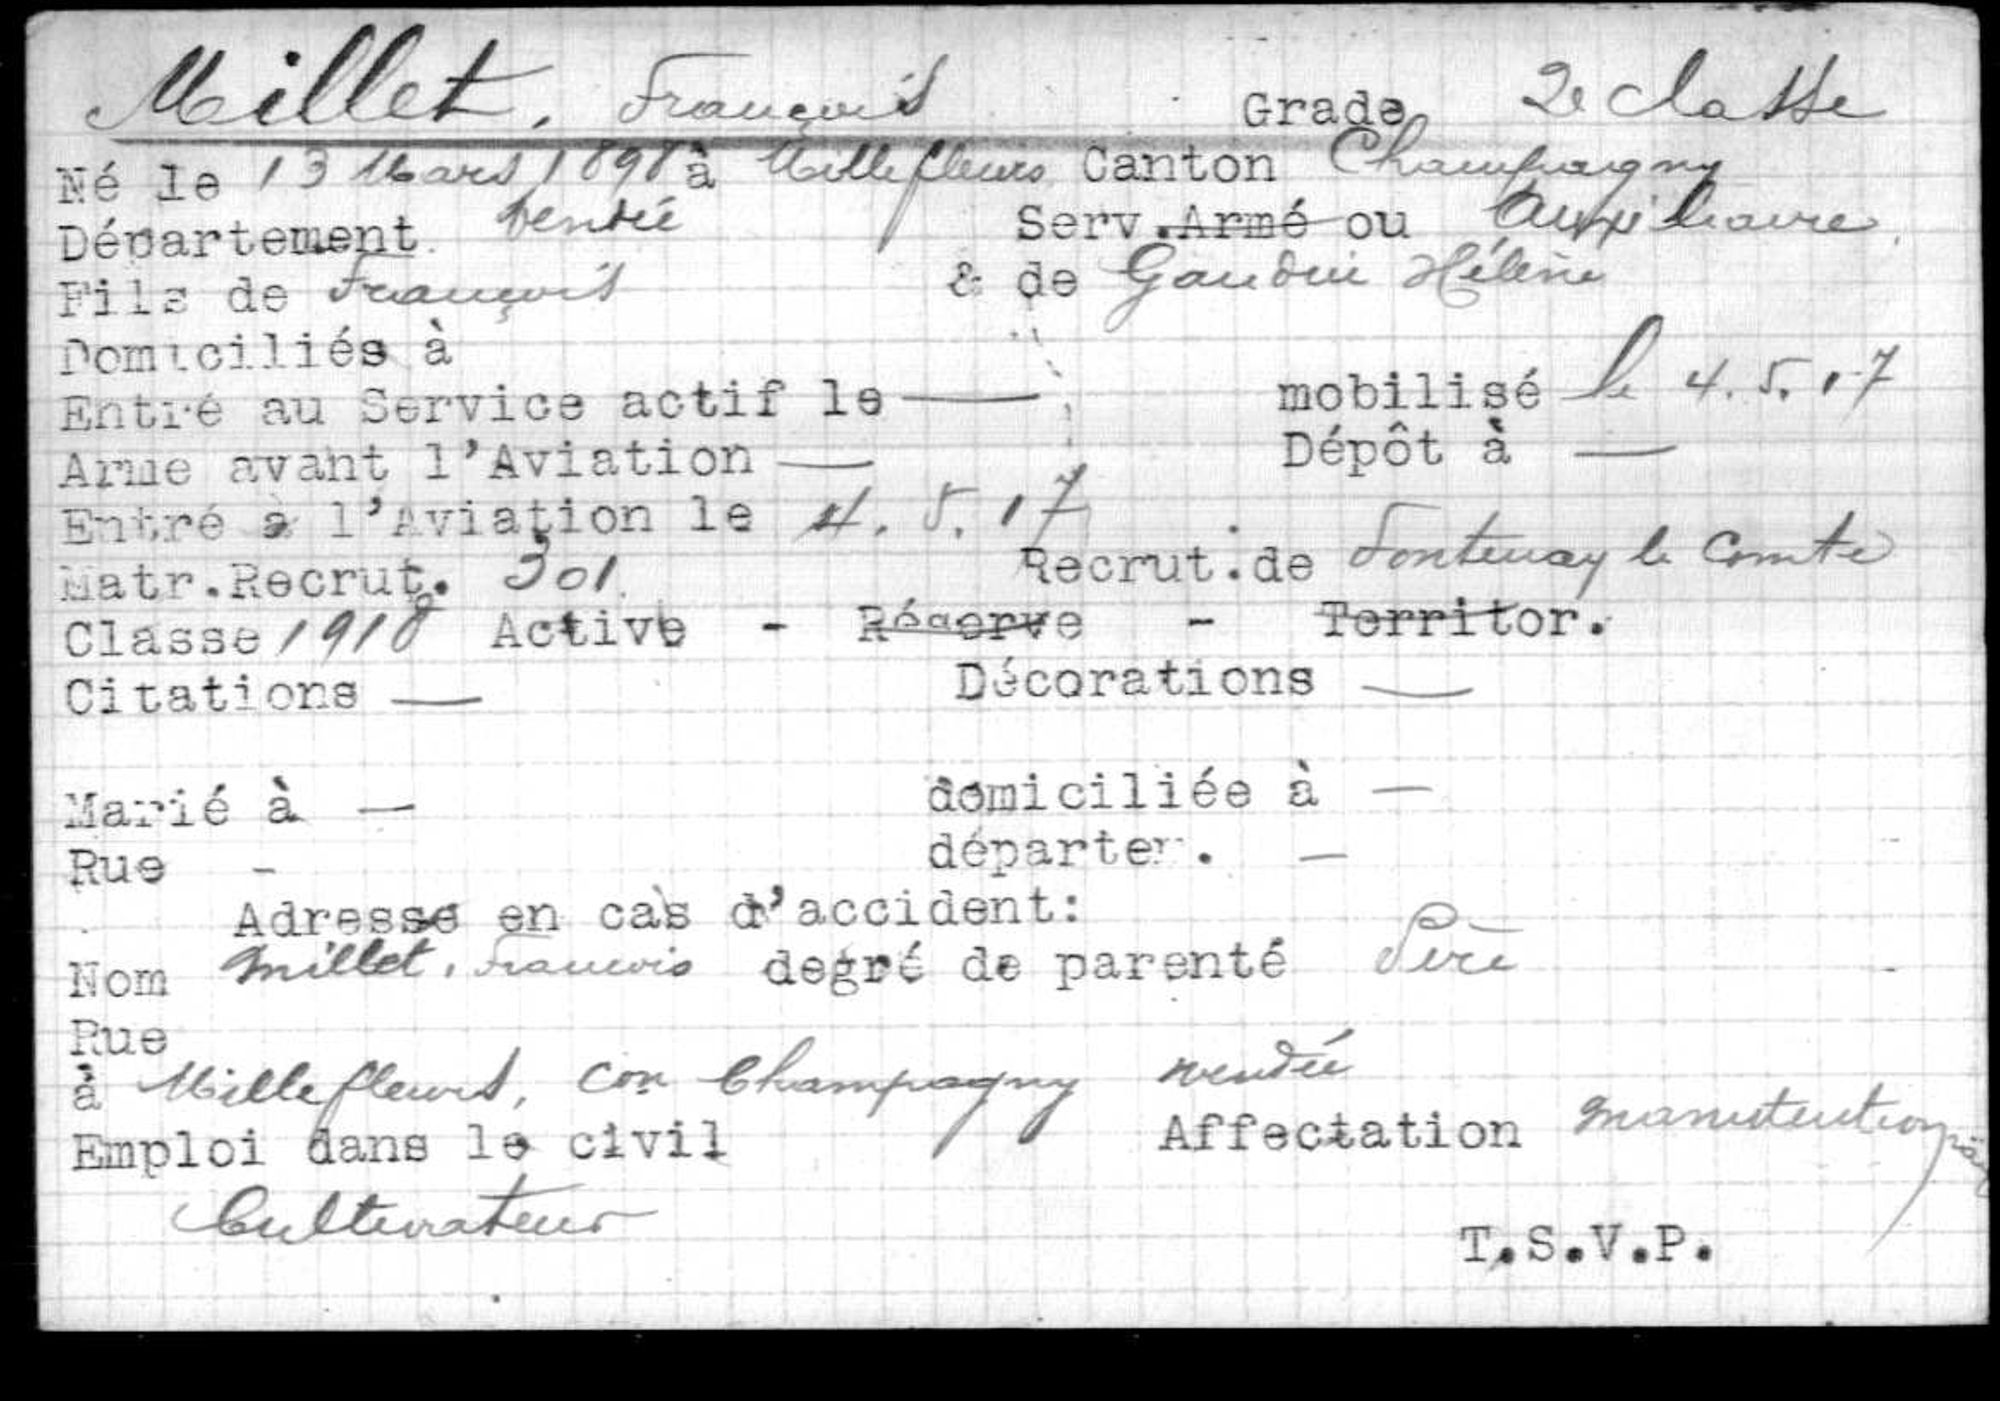 Millet, François Grade 2e classe
Né le 13 Mars 1898 à Millefleurs Canton Champagny
Département Vendée Serv. Armé ou Auxiliaire
Fils de François & de Gauduin Hélène
Domiciliés à
Entré au Service actif le — mobilisé le 4.5.17
Arme avant l'Aviation — Dépôt à —
Entré à l'Aviation le 4.5.17
Matr.Recrut. 301 Recrut.de Fontenay le Comte
Classe 1918 Active - Réserve - Territor.
Citations — Décorations —
Marié à — domiciliée à —
Rue - départem. —
Adresse en cas d'accident:
Nom Millet, Francois degré de parenté Père
Rue
à Millefleurs, Con Champagny Vendée
Emploi dans le civil Affectation manutention
Cultivateur
T.S.V.P.